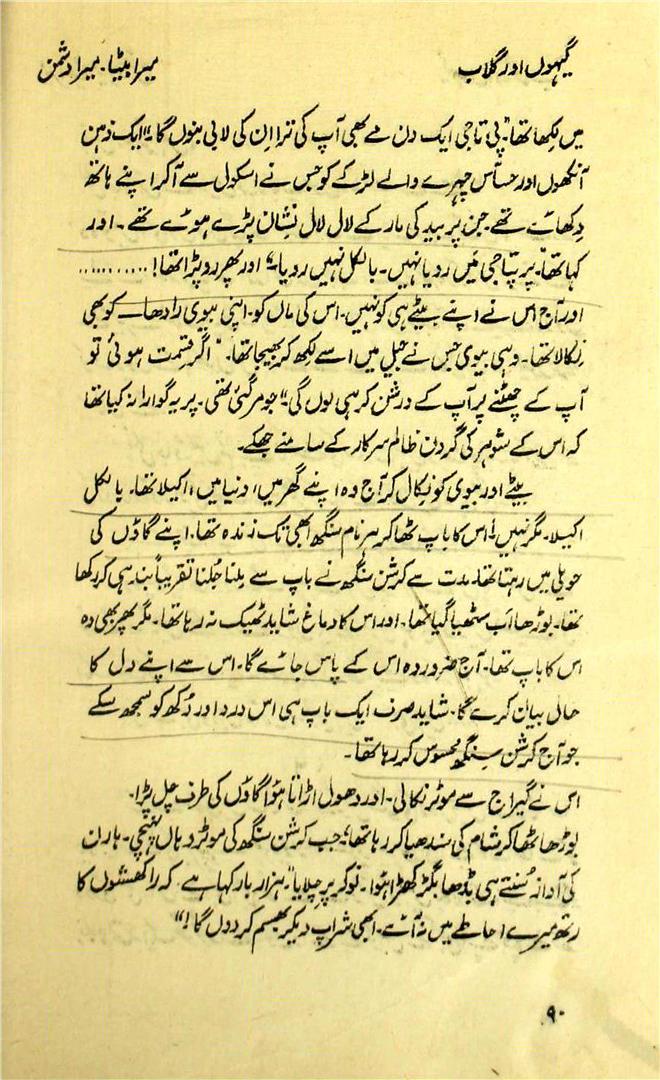 گیہوں اور گلاب
میرا بیٹا۔ میرا دشمن
میں لکھا تھا۔ "پِتا جی ایک دن مَے بھی آپ کی ترا اِن کی لابی بنوں گا۔" ایک ذہین
آنکھوں اور حسّاس چہرے والے لڑکے کو جس نے اسکول سے آکر اپنے ہاتھ
دِکھائے تھے۔ جن پر بید کی مار کے لال لال نشان پڑے ہوئے تھے۔ اور
کہا تھا۔ پر پتا جی مَیں رویا نہیں۔ بالکل نہیں رویا۔" اور پھر رو پڑا تھا! ............
اور آج اس نے اپنے بیٹے ہی کو نہیں۔ اس کی ماں کو۔ اپنی بیوی رادھا کو بھی
نکالا تھا۔ وہی بیوی جس نے جیل میں اسے لکھ کر بھیجا تھا۔ "اگر قسمت ہوئی تو
آپ کے چھٹنے پر آپ کے درشن کر ہی لوں گی" جو مر گئی تھی۔ پر یہ گوارا نہ کیا تھا
کہ اس کے شوہر کی گردن ظالم سرکار کے سامنے جھکے۔
بیٹے اور بیوی کو نکال کر آج وہ اپنے گھر میں، دنیا میں، اکیلا تھا۔ بالکل
اکیلا۔ مگر نہیں! اس کا باپ ٹھاکر ہرنام سنگھ ابھی تک زندہ تھا۔ اپنے گاؤں کی
حویلی میں رہتا تھا۔ مدت سے کرشن سنگھ نے باپ سے ملنا جُلنا تقریباً بند ہی کر رکھا
تھا۔ بوڑھا اب سٹھیا گیا تھا۔ اور اس کا دماغ شاید ٹھیک نہ رہا تھا۔ مگر پھر بھی وہ
اس کا باپ تھا۔ آج ضرور وہ اس کے پاس جائے گا۔ اس سے اپنے دل کا
حال بیان کرے گا۔ شاید صرف ایک باپ ہی اس درد اور دُکھ کو سمجھ سکے
جو آج کرشن سنگھ محسوس کر رہا تھا۔
اس نے گیراج سے موٹر نکالی۔ اور دھول اڑاتا ہوا گاؤں کی طرف چل پڑا۔
بوڑھا ٹھاکر شام کی سندھیا کر رہا تھا، جب کرشن سنگھ کی موٹر وہاں پہنچی۔ ہارن
کی آواز سُنتے ہی بڈھا بگڑ کھڑا ہوا۔ نوکر پر چلایا "ہزار بار کہا ہے کہ راکھشسوں کا
رتھ میرے احاطے میں نہ آئے۔ ابھی شراپ دیکر بھسم کر دوں گا!"
۹۰